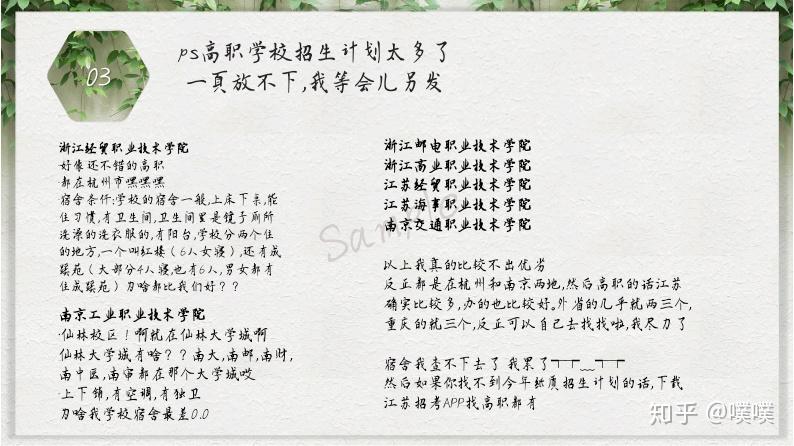 03
ps高职学校招生计划太多了
一页放不下,我等会儿另发
浙江经贸职业技术学院
好像还不错的高职
都在杭州市嘿嘿嘿
宿舍条件:学校的宿舍一般,上床下桌,能
住习惯,有卫生间,卫生间里是镜子厕所
洗漱的洗衣服的,有阳台,学校分两个住
的地方,一个叫红楼（6人女寝）,还有成
蹊苑（大部分4人寝,也有6人,男女都有
住成蹊苑）为啥都比我们好？？
南京工业职业技术学院
·仙林校区！啊就在仙林大学城啊
仙林大学城有啥？？南大,南邮,南财,
南中医,南审都在那个大学城哎
·上下铺,有空调,有独卫
为啥我学校宿舍最差0.0
浙江邮电职业技术学院
浙江商业职业技术学院
江苏经贸职业技术学院
江苏海事职业技术学院
南京交通职业技术学院
以上我真的比较不出优劣
反正都是在杭州和南京两地,然后高职的话江苏
确实比较多,办的也比较好。外省的几乎就两三个,
重庆的就三个,反正可以自己去找找啦,我尽力了
宿舍我查不下去了 我累了┭┮﹏┭┮
然后如果你找不到今年纸质招生计划的话,下载
江苏招考APP找高职都有
Sample
知乎 @噗噗